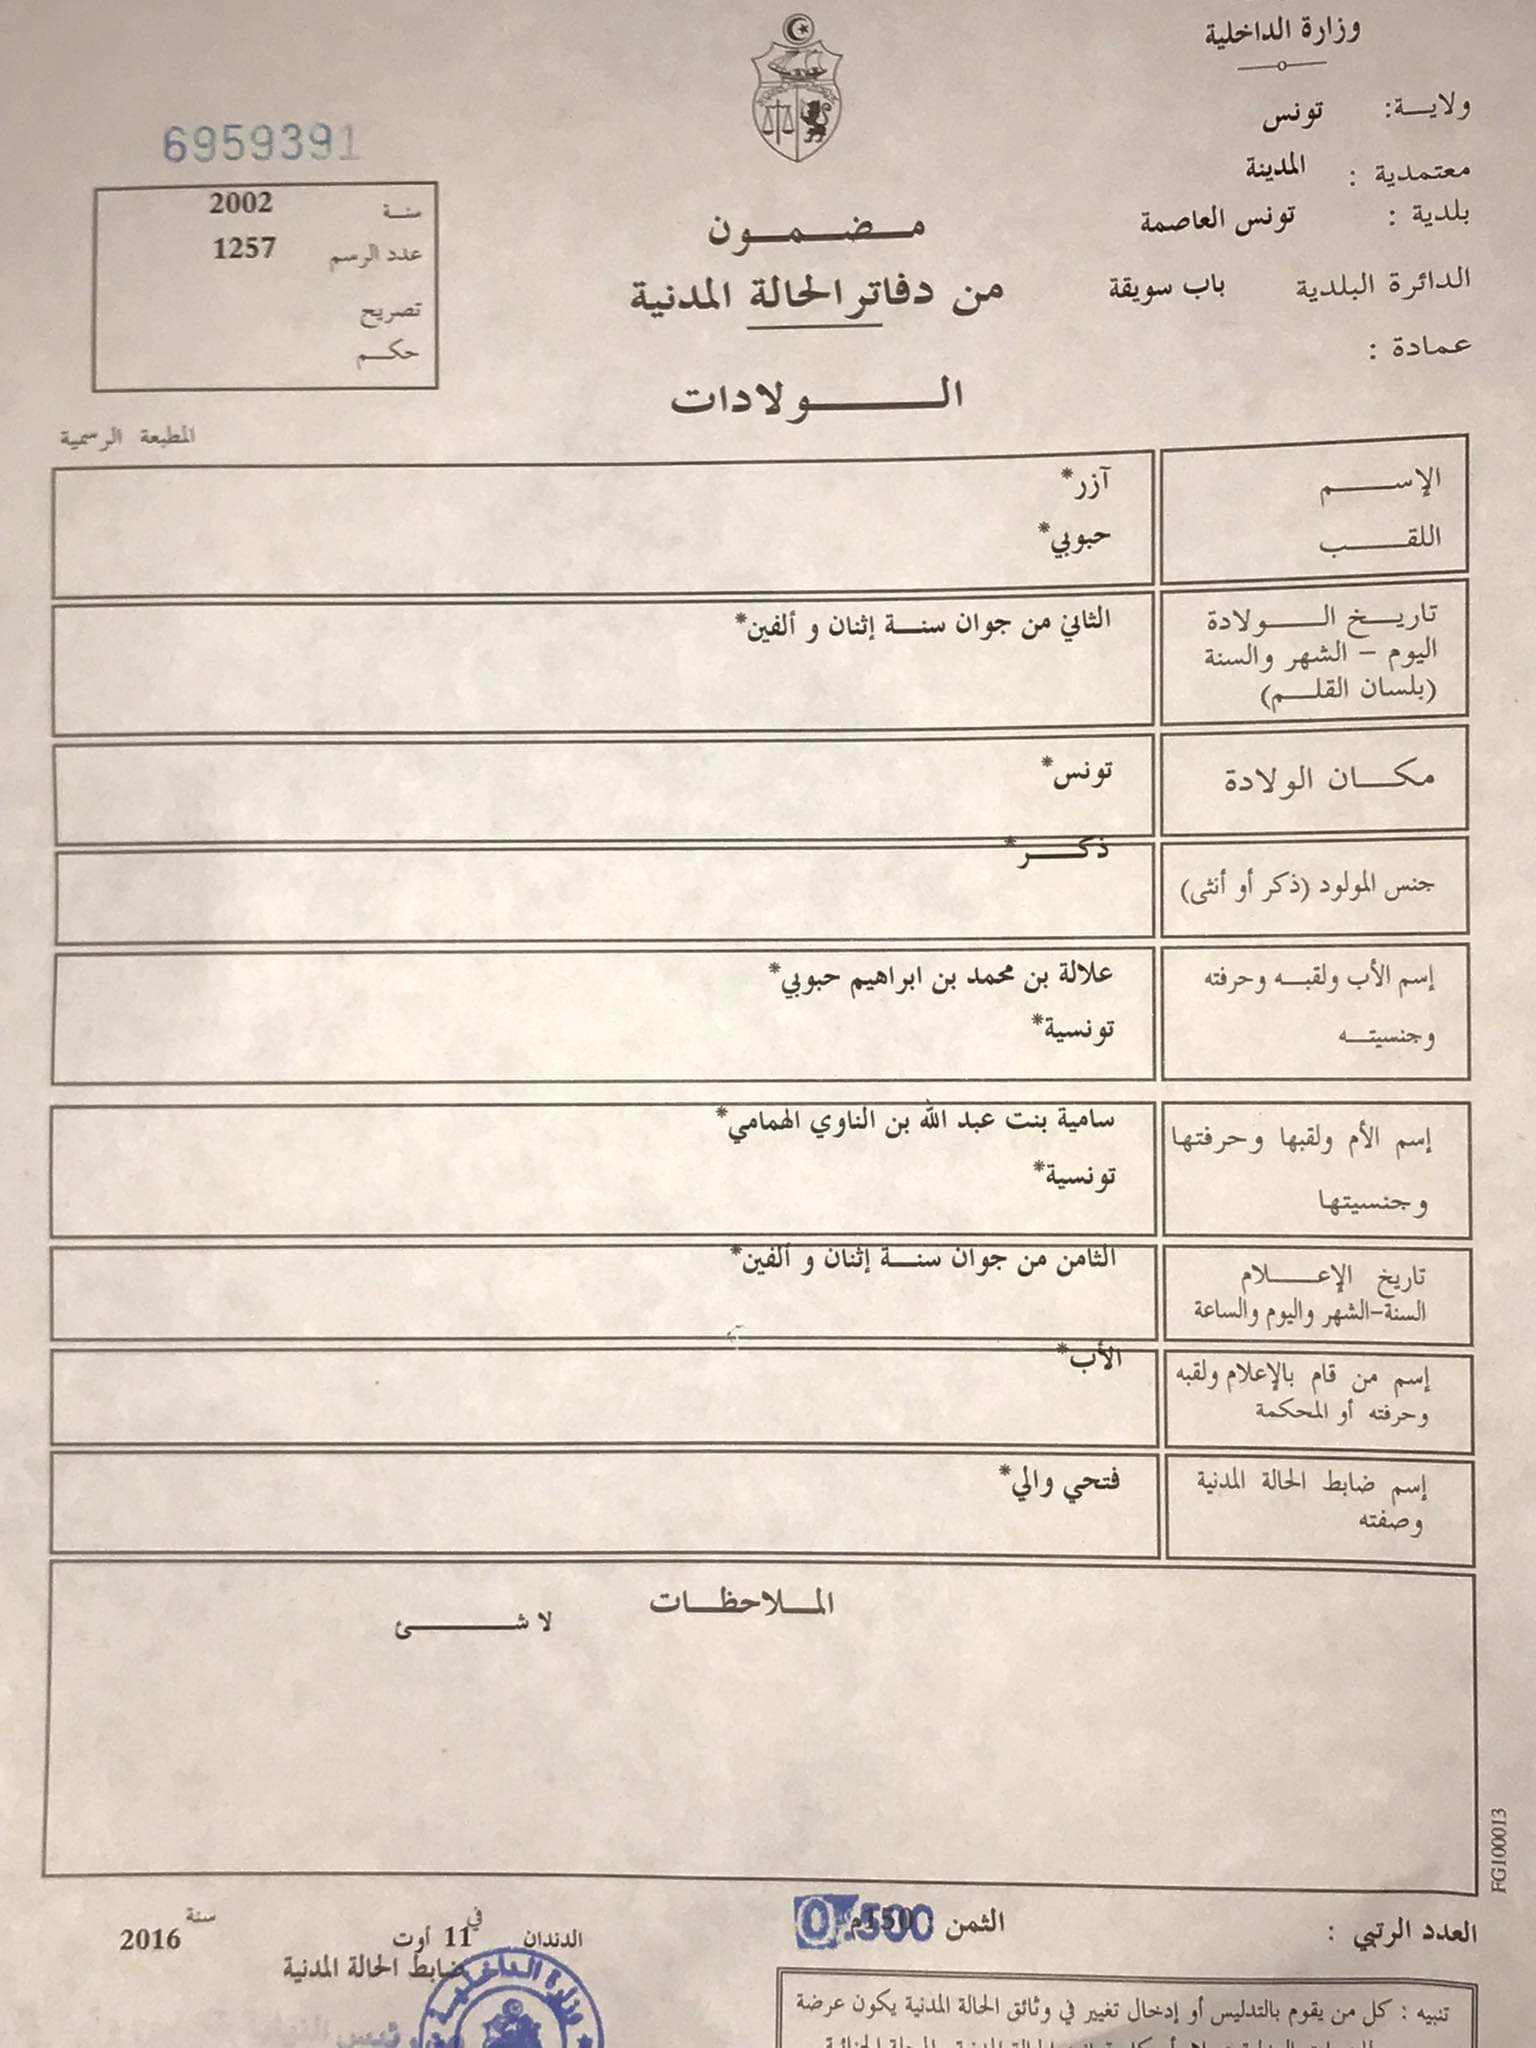 وزارة الداخلية
ولايـــة: تونس
معتمدية : المدينة
بلدية : تونس العاصمة
الدائرة البلدية باب سويقة
عمادة :
6959391
سنـة 2002
عدد الرسم 1257
تصريح
حكـم
المطبعة الرسمية
مـــضـــمـــون
من دفاتر الحالة المدنية
الــــــولادات
الإســـــم آزر*
اللقـــــب حبوبي*
تاريـــخ الـــــولادة الثاني من جوان سنـــة إثنان و ألفين*
اليوم – الشهر والسنة
(بلسان القلـــم)
مكـــان الولادة تونس*
جنس المولود (ذكر أو أنثى) ذكـــــر*
إسم الأب ولقبـــه وحرفته علالة بن محمد بن ابراهيم حبوبي*
وجنسيتـــه تونسية*
إسم الأم ولقبها وحرفتها سامية بنت عبد الله بن الناوي الهمامي*
وجنسيتها تونسية*
تاريخ الإعـــــلام الثامن من جوان سنـــة إثنان و ألفين*
السنة-الشهر واليوم والساعة
إسم من قام بالإعلام ولقبه الأب*
وحرفته أو المحكمة
إسم ضابط الحالة المدنية فتحي والي*
وصفته
الملاحظـــات
لا شـــــــئ
FG100013
العدد الرتبي :
الثمن : 150م
0.500
الدندان في 11 أوت سنة 2016
ضابط الحالة المدنية
وزارة الداخلية
تنبيه : كل من يقوم بالتدليس أو إدخال تغيير في وثائق الحالة المدنية يكون عرضة